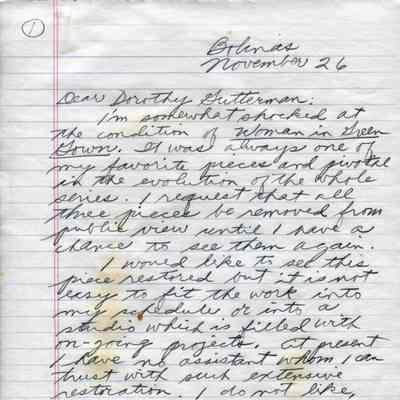 1
Bolinas
November 26
Dear Dorothy Gutterman:
I'm somewhat shocked at
the condition of Woman in Green
Gown. It was always one of
my favorite pieces and pivotal
in the evolution of the whole
series. I request that all
three pieces be removed from
public view until I have a
chance to see them again.
I would like to see this
piece restored but it is not
easy to fit the work into
my schedule or into a
studio which is filled with
on-going projects. At present
I have no assistant whom I can
trust with such extensive
restoration. I do not like,